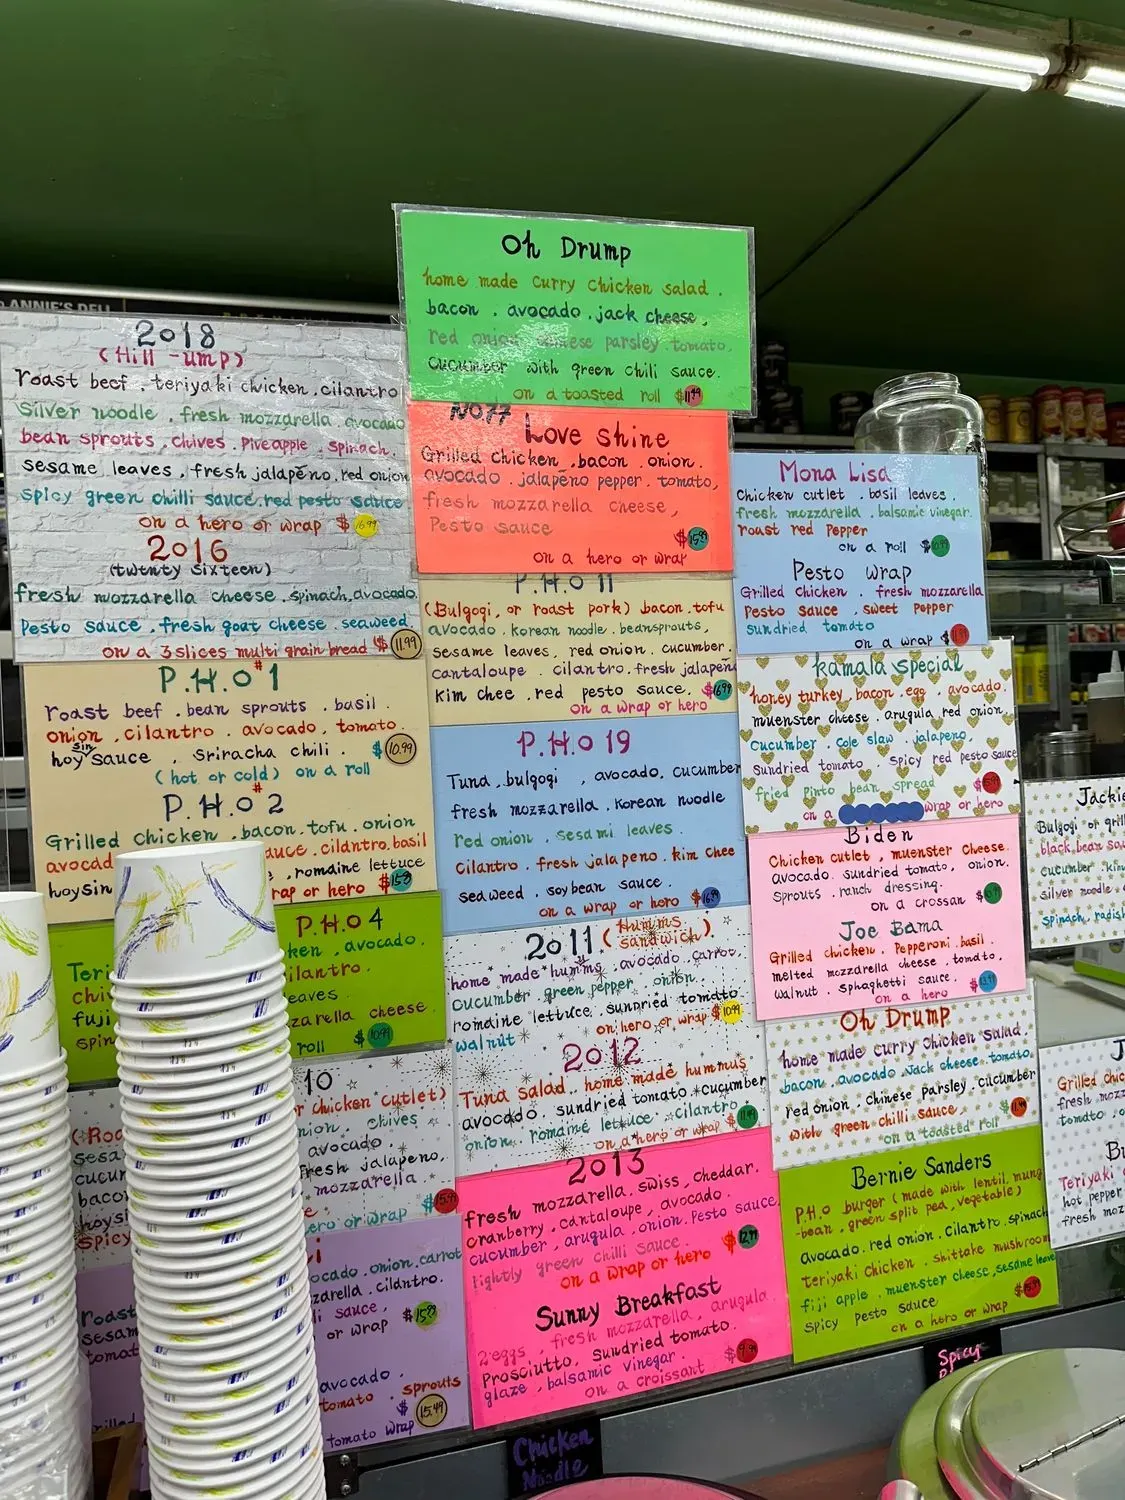 ANNIE'S DELI
Oh Drump
home made curry chicken salad.
bacon. avocado. jack cheese,
red onion chinese parsley. tomato,
cucumber with green chili sauce.
on a toasted roll $11.99
2018
(Hill-ump)
roast beef. teriyaki chicken. cilantro
Silver noodle. fresh mozzarella avocado
bean sprouts. chives. Pineapple. spinach.
sesame leaves, fresh jalapeño. red onion
spicy green chilli sauce. red pesto sauce
on a hero or wrap $16.99
2016
(twenty sixteen)
fresh mozzarella cheese. spinach, avocado.
Pesto sauce. fresh goat cheese. seaweed.
on a 3 slices multi grain bread $11.99
P.H.O #1
roast beef. bean sprouts. basil.
onion. cilantro. avocado, tomato.
hoy sin sauce, Sriracha chili. $10.99
(hot or cold) on a roll
P.H.O #2
Grilled chicken. bacon. tofu. onion
avocad
auce. cilantro. basil
hoysin
, romaine lettuce
rap or hero
P.H.O 4
Teri
ken, avocado.
chi
ilantro.
fuji
eaves
spin
zarella cheese
roll $10.99
10
r chicken cutlet)
(Roa
nion, chives
sesa
avocado
cucu
fresh jalapeno,
baco
mozzarella
hoysi
spicy
ero or wrap $15.99
i
ocado. onion. carrot
zarella. cilantro.
Roast
li sauce,
$15.99
sesam
or wrap
tomat
avocado.
tomato. sprouts
$15.49
tomato wrap
Love shine
Grilled chicken. bacon. onion.
avocado. jalapeno pepper. tomato,
fresh mozzarella cheese,
Pesto sauce
on a hero or wrap
P.H.O 11
(Bulgogi, or roast pork) bacon. tofu
avocado. korean noodle. beansprouts,
sesame leaves, red onion. cucumber.
cantaloupe. cilantro. fresh jalapen
kim chee. red pesto sauce. $16.99
on a wrap or hero
P.H.O 19
Tuna. bulgogi, avocado. cucumber
fresh mozzarella. korean noodle
red onion. sesami leaves.
cilantro. fresh jalapeno. kim chee
seaweed. soybean sauce.
on a wrap or hero $16.99
2011 (Humms sandwich)
home made humms. avocado. carrot,
cucumber green pepper. onion.
romaine lettuce, sundried tomato
on hero, or wrap $10.99
walnut
2012
Tuna salad. home made hummus
avocado. sundried tomato. cucumber
onion. romaine lettuce. cilantro.
on a hero or wrap $11.99
2013
fresh mozzarella. swiss, cheddar.
cranberry. cantaloupe, avocado.
cucumber, arugula. onion. Pesto sauce
lightly green chili sauce.
on a wrap or hero $12.99
Sunny Breakfast
2 eggs, fresh mozzarella, arugula.
Prosciutto, sundried tomato.
glaze, balsamic vinegar.
on a croissant $9.99
Mona Lisa
Chicken cutlet. basil leaves.
fresh mozzarella. balsamic vinegar.
roast red Pepper
on a roll
Pesto wrap
Grilled chicken. fresh mozzarella
Pesto sauce, sweet pepper
sundried tomato
on a wrap $11.99
kamala special
honey turkey, bacon. egg, avocado.
muenster cheese. arugula red onion.
Cucumber. Cole slaw. jalapeno,
sundried tomato. spicy red pesto sauce
fried pinto bean spread
on a wrap or hero
Biden
Chicken cutlet, muenster cheese.
avocado. sundried tomato, onion.
sprouts. ranch dressing.
on a crossan
Joe Bama
Grilled chicken. Pepperoni. basil.
melted mozzarella cheese. tomato.
walnut. sphaghetti sauce.
on a hero
Oh Drump
home made curry chicken salad
bacon. avocado. Jack cheese. tomato
red onion. chinese parsley. cucumber
with green chilli sauce, $11.99
on a toasted roll
Bernie Sanders
P.H.O burger (made with lentil, mung
-bean, green split pea, vegetable)
avocado. red onion. cilantro. spinach
teriyaki chicken. shittake mushroom
fiji apple. muenster cheese, sesame leave
spicy pesto sauce $15.99
on a hero or wrap
Jackie
Bulgogi or gril
black bean sau
cucumber kim
silver noodle
spinach, radish
J
Grilled chic
fresh moz
tomato. o
Teriyaki
hot pepper
fresh moz
Spicy
Chicken
Noodle